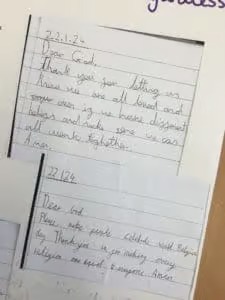 22.1.24
Dear God,
Thank you for letting us
know we are all loved and
even if we have different
and make sure we can
all work together.
Amen.
22.1.24
Dear God
Please make people celebrate world Religion
day Thank you for making every
religion are equal to everyone Amen